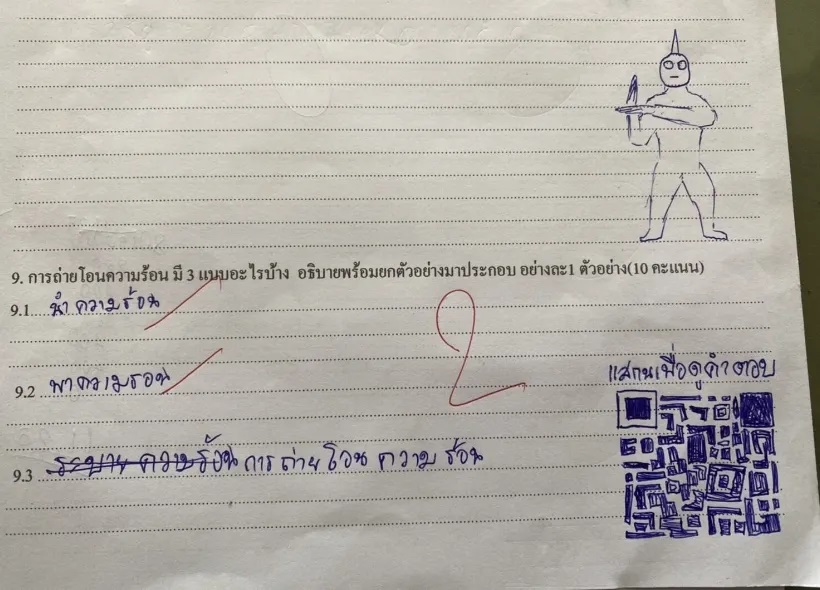 9. การถ่ายโอนความร้อน มี 3 แบบอะไรบ้าง อธิบายพร้อมยกตัวอย่างมาประกอบ อย่างละ1 ตัวอย่าง(10 คะแนน)
9.1 นำความร้อน
9.2 พาความรอน
2
แสกนเพื่อดูคำตอบ
9.3 ระบาย ความร้อน การถ่ายโอนความร้อน